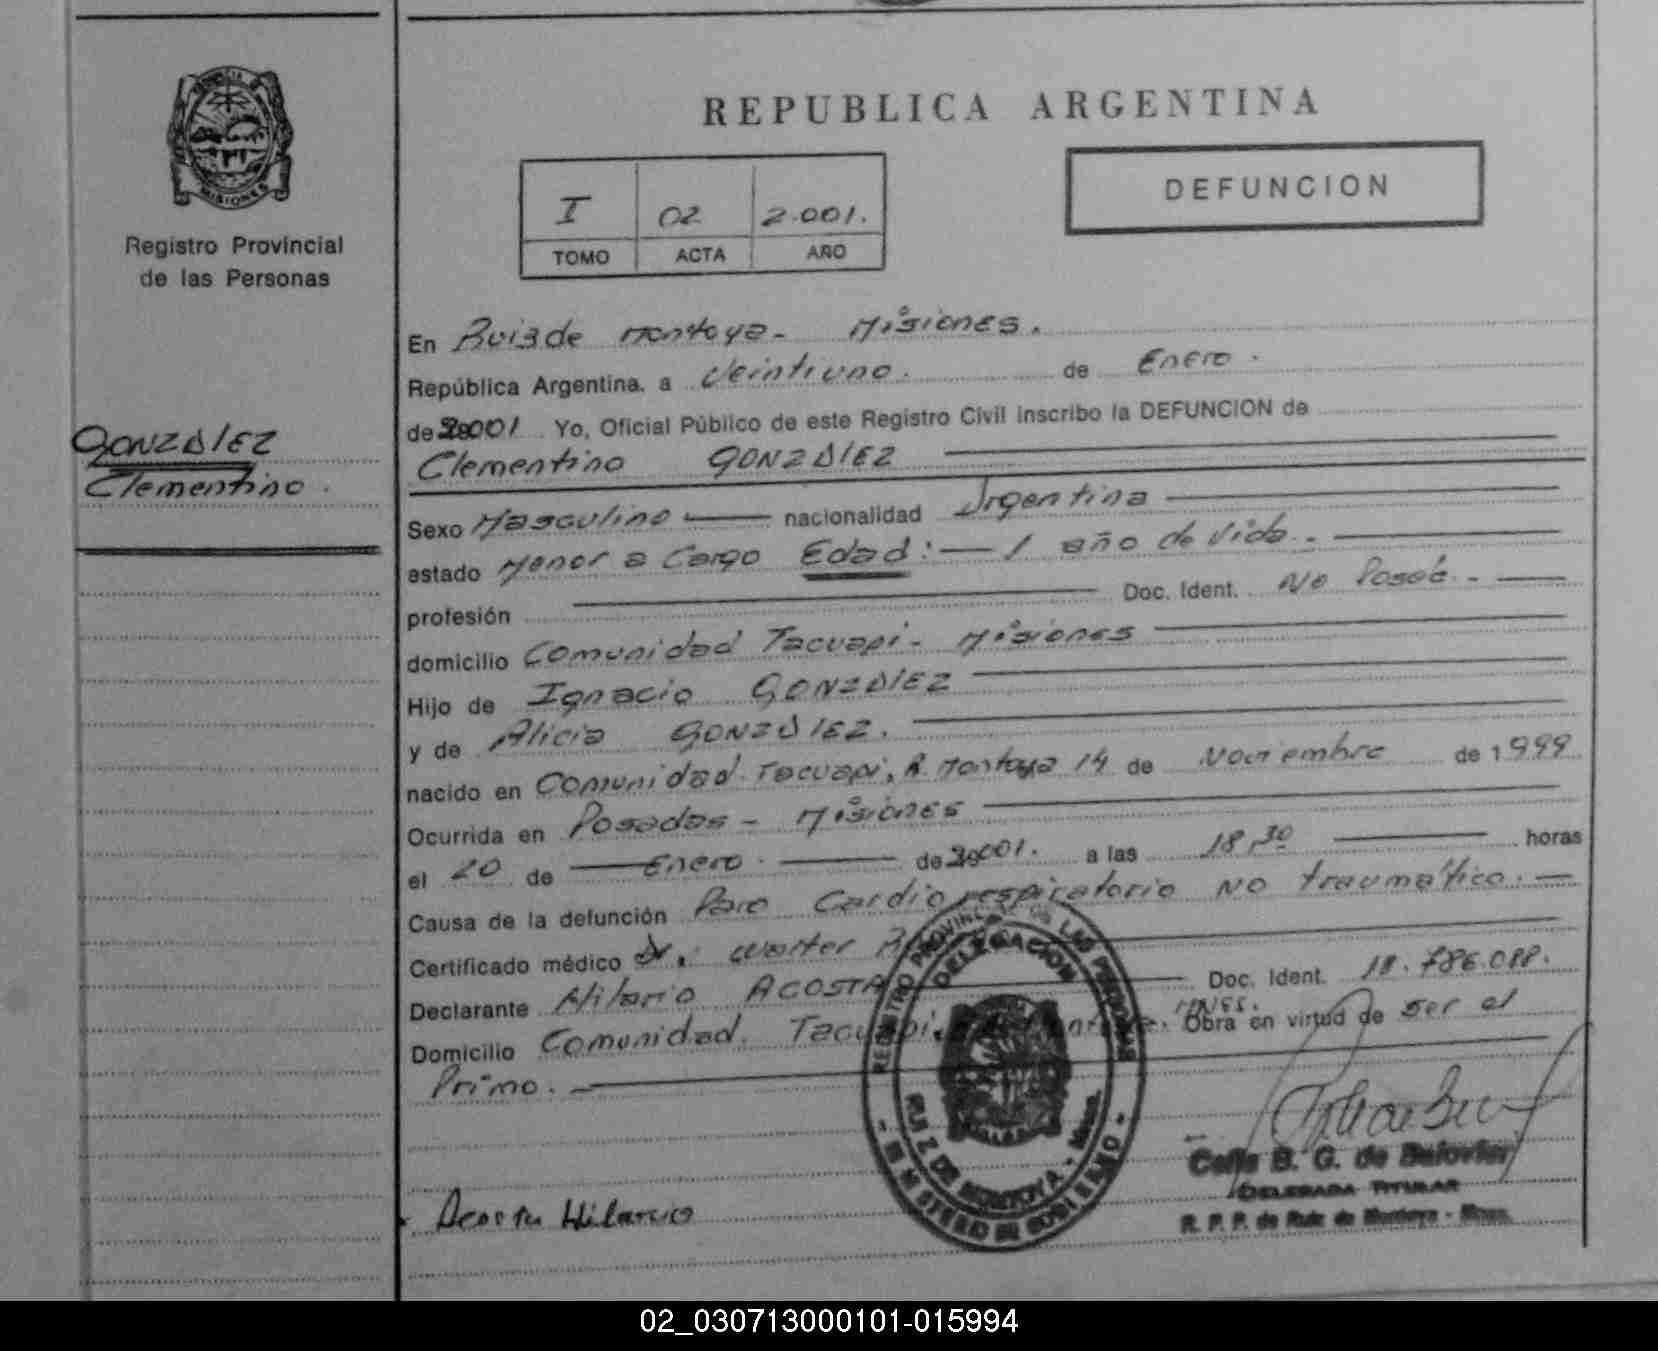 REPUBLICA ARGENTINA
PROVINCIA DE
MISIONES
Registro Provincial
de las Personas
I 02 2.001.
TOMO ACTA AÑO
DEFUNCION
GONZALEZ
Clementino.
En Ruiz de Montoya - Misiones.
República Argentina, a veintiuno. de Enero.
de 2001 Yo, Oficial Público de este Registro Civil inscribo la DEFUNCION de
Clementino GONZALEZ
Sexo Masculino nacionalidad Argentina
estado Menor a Cargo Edad: 1 año de vida.
profesión Doc. Ident. No Posee.
domicilio Comunidad Tacuapi - Misiones
Hijo de Ignacio GONZALEZ
y de Alicia GONZALEZ.
nacido en Comunidad Tacuapi, R. Montoya 14 de Noviembre de 1999
Ocurrida en Posadas - Misiones
el 20 de Enero. de 2001. a las 18,30 horas
Causa de la defunción Paro Cardio respiratorio NO traumático.
Certificado médico Dr. Walter
Declarante Hilario ACOSTA Doc. Ident. 18.786.088.
Domicilio Comunidad Tacuapi, Mnes. Obra en virtud de ser el
Primo.
REGISTRO PROVINCIAL DE LAS PERSONAS
DELEGACION
RUIZ DE MONTOYA - Mnes.
- MINISTERIO DE GOBIERNO -
Acosta Hilario
B. G. de
DELEGADA TITULAR
R. P. P. de Ruiz de Montoya - Mnes.
02_030713000101-015994